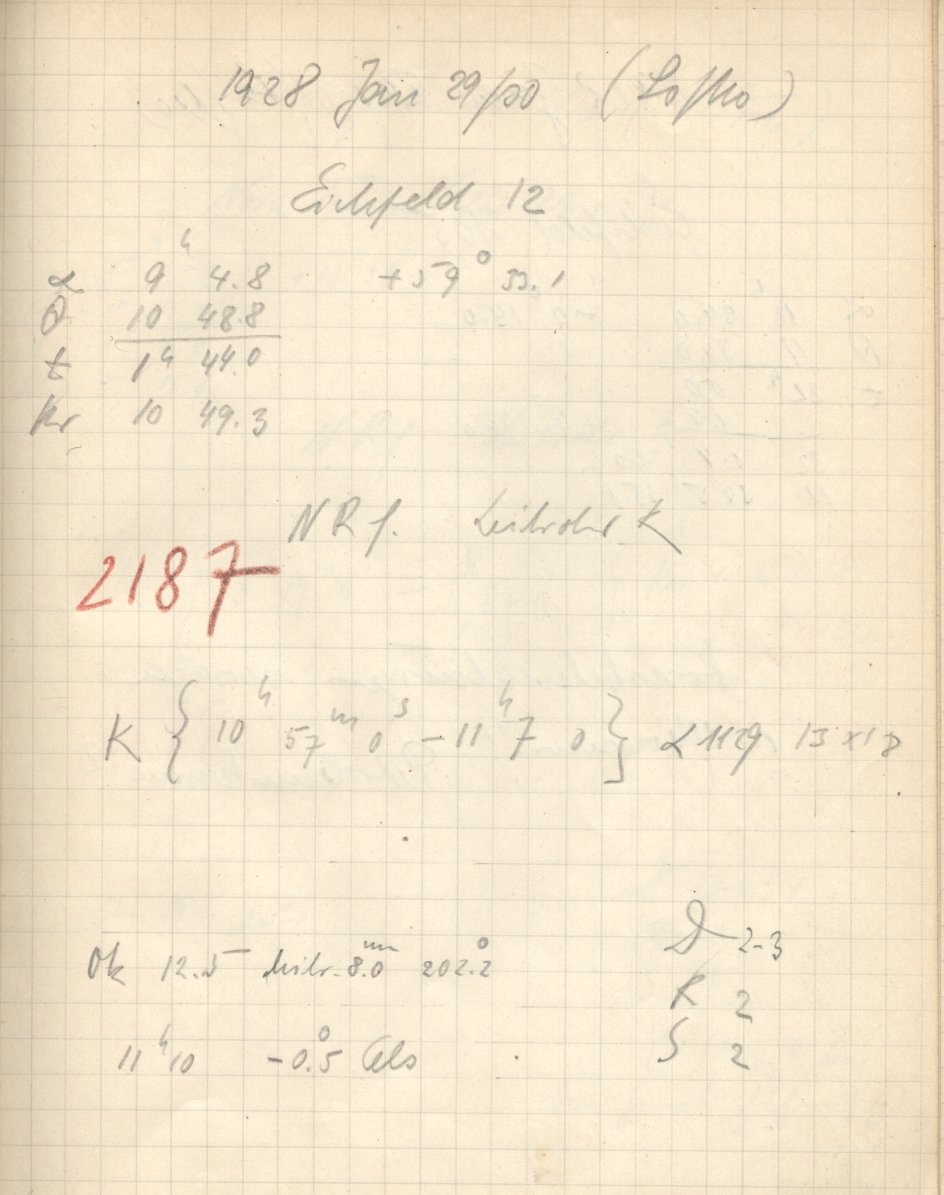 1928 Jan 29/30 (Loho)
Eichfeld 12
α 9ʰ 4.8 +59° 53.1
θ 10 48.8
t 1ʰ 44.0
Kr 10 49.3
NRf. Leitrohr K
2187
K { 10ʰ 57ᵐ 0ˢ – 11ʰ 7 0 } L 1129 13 x 18
Ok 12.5 8.0ᵐᵐ 202.2°
11ʰ 10 -0.5° Cels
D 2-3
K 2
S 2